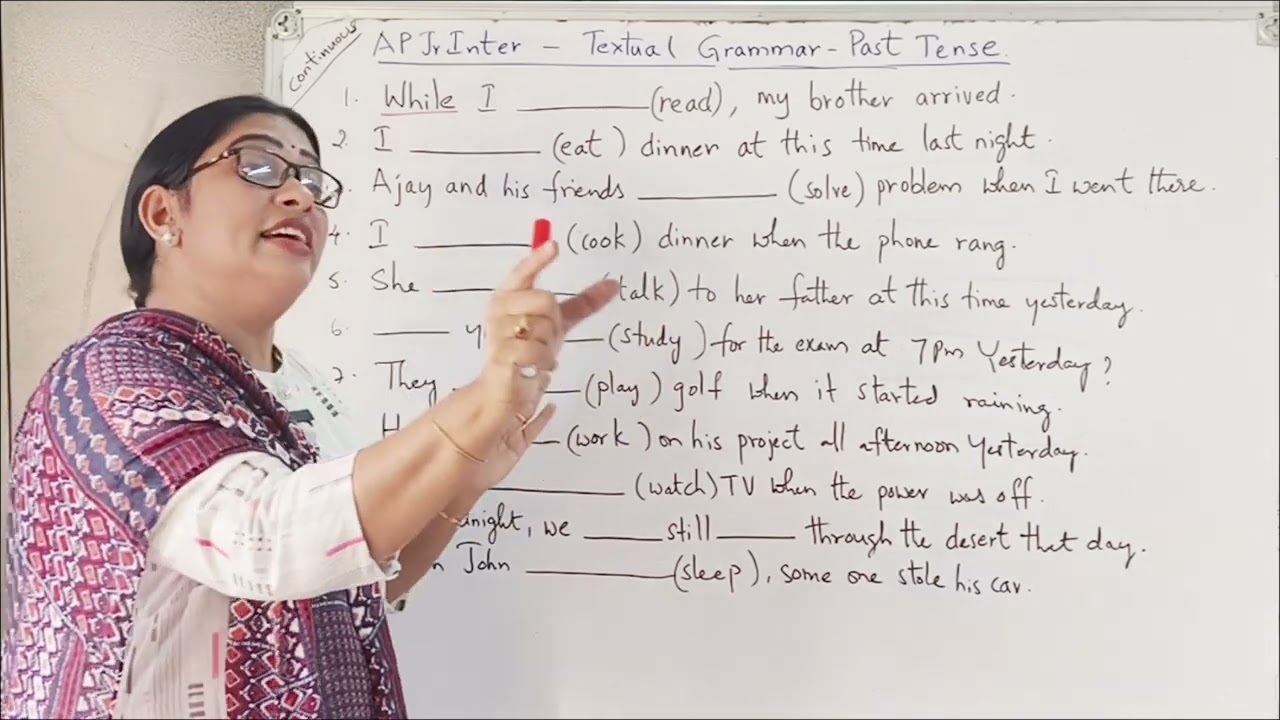 continuous
AP Jr Inter - Textual Grammar - Past Tense.
1. While I ________ (read), my brother arrived.
2. I ________ (eat) dinner at this time last night.
Ajay and his friends ________ (solve) problem when I went there.
4. I ________ (cook) dinner when the phone rang.
5. She ________ (talk) to her father at this time yesterday.
6. ____ ____ (study) for the exam at 7 Pm Yesterday?
7. They ________ (play) golf when it started raining.
____ (work) on his project all afternoon Yesterday.
________ (watch) TV when the power was off.
we ____ still ____ through the desert that day.
John ________ (sleep), some one stole his car.